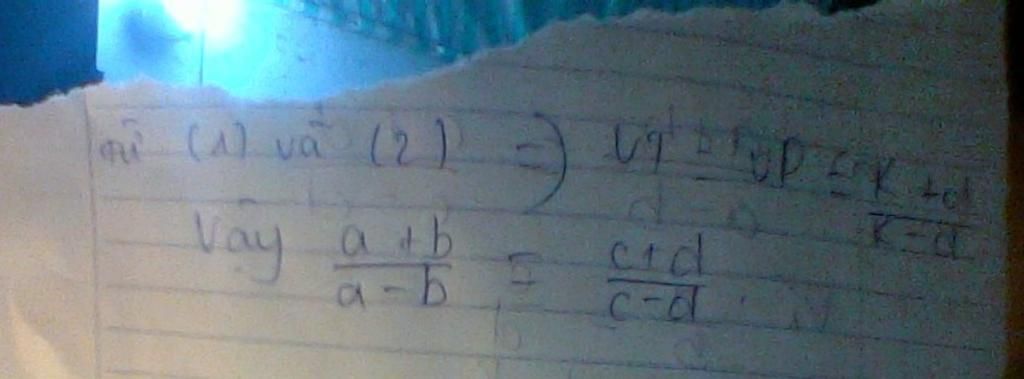 từ (1) và (2) => VT = VP = \frac{k+d}{k-d}
Vậy \frac{a+b}{a-b} = \frac{c+d}{c-d}.